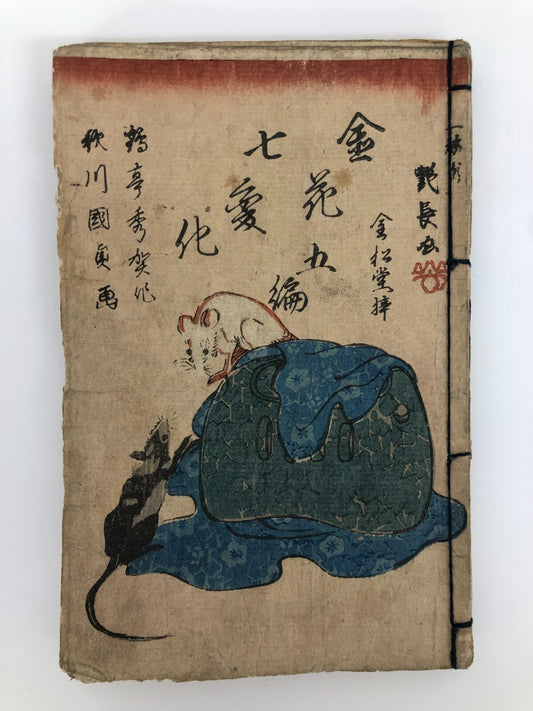 一橋斎
艶長画
金松堂梓
金花五編
七變化
鶴亭秀賀作
歌川國貞画